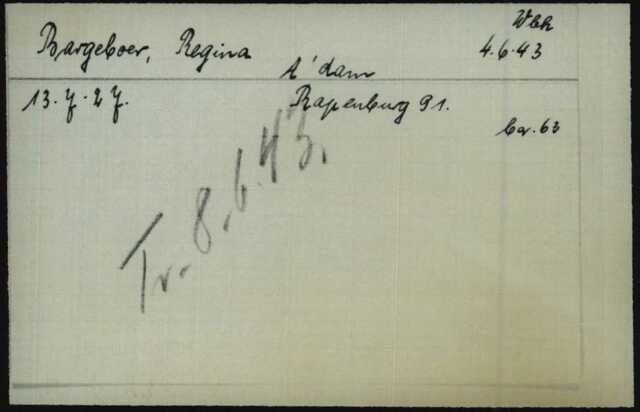 Wbk
Bargeboer, Regina
4.6.43
A'dam
13.7.27.
Rapenburg 91.
bar. 63
Tr. 8.6.43.